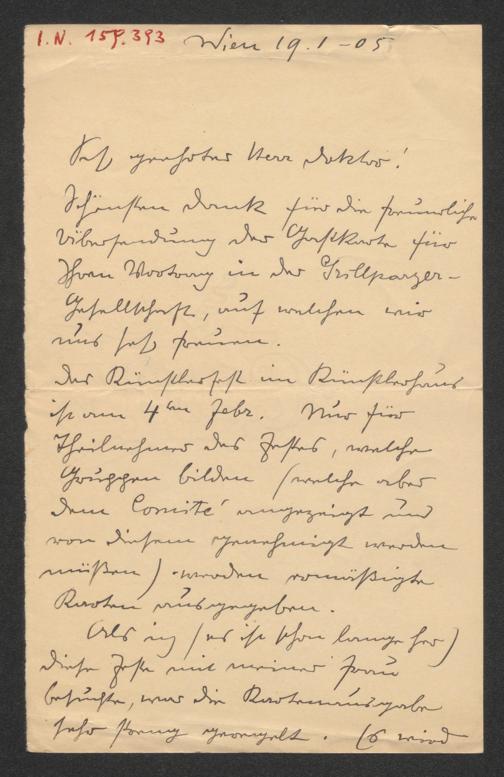 I.N. 159.393
Wien 19.1-05
Sehr geehrter Herr Doktor!
Schönsten Dank für die freundliche
Übersendung der Gastkarte für
Ihren Vortrag in der Grillparzer-
Gesellschaft, auf welchen wir
uns sehr freuen.
Das Künstlerfest im Künstlerhaus
ist am 4ten Febr. Nur für
Theilnehmer des Festes, welche
Gruppen bilden (welche aber
dem Comité angezeigt und
von diesem genehmigt werden
müßen) werden ermäßigte
Karten ausgegeben.
Als ich (es ist schon lange her)
diese Feste mit meiner Frau
besuchte, war die Kartenausgabe
sehr streng geregelt. Es wird